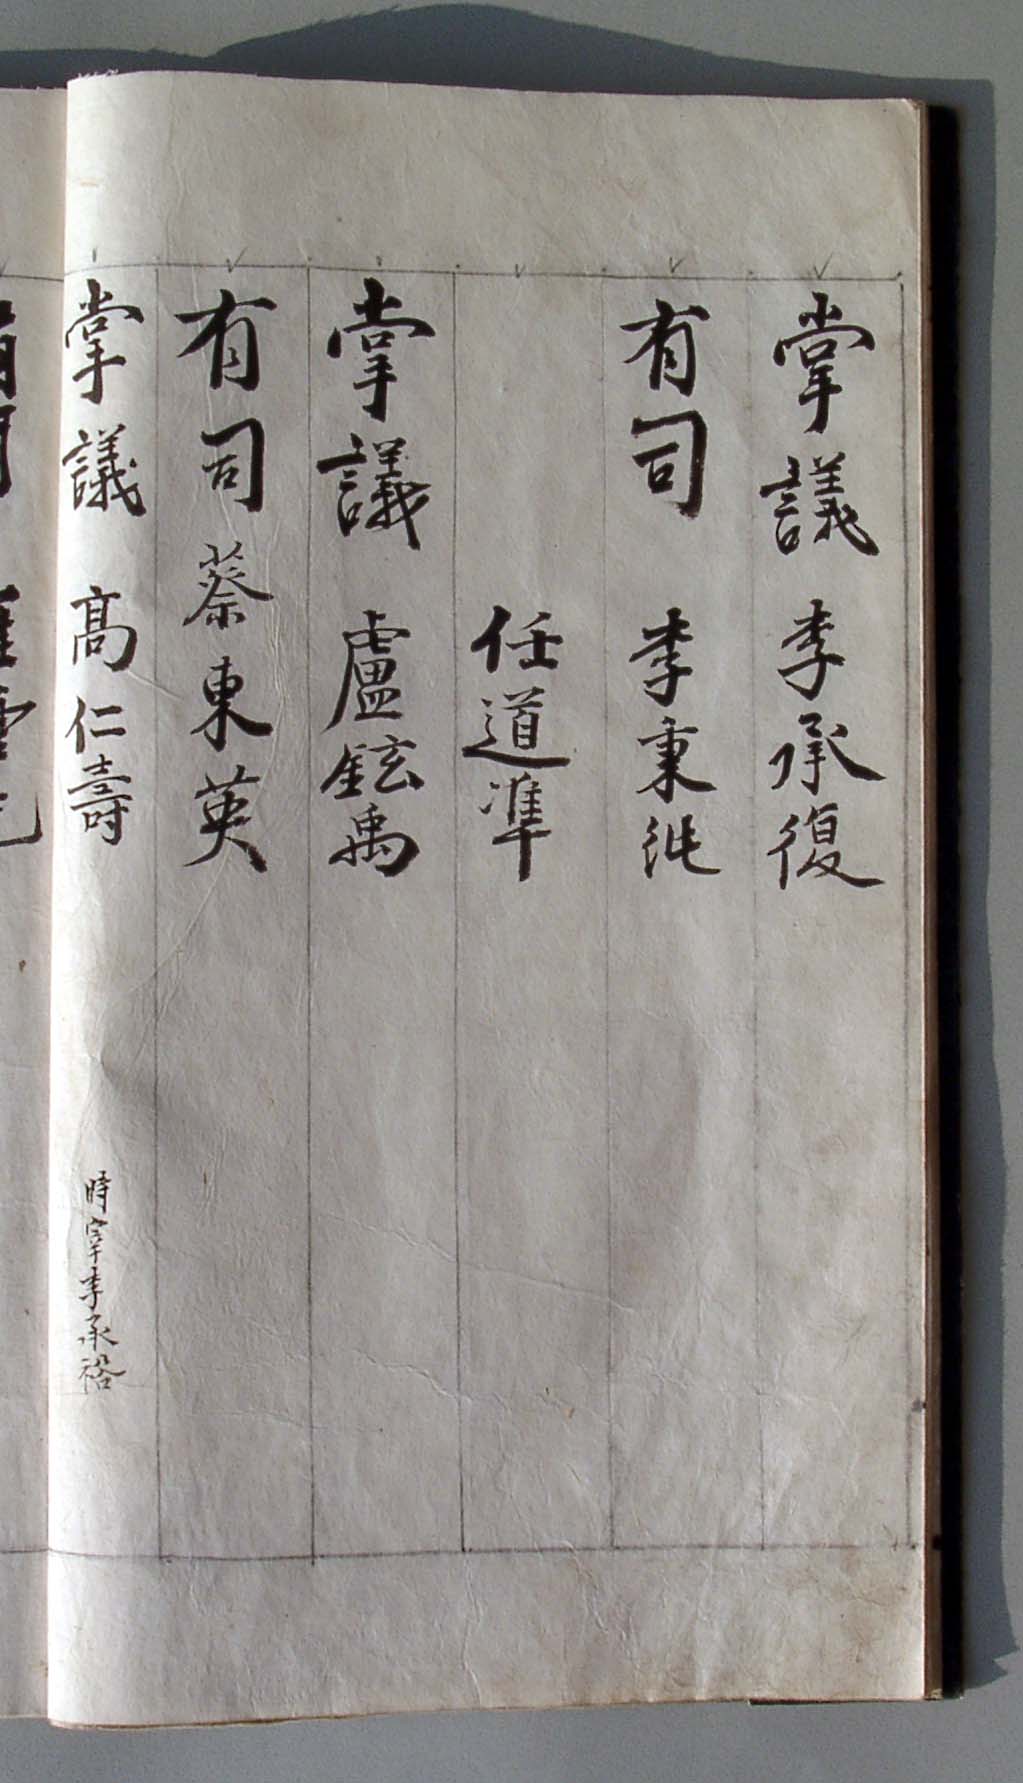 掌議 李承復
有司 李秉純
任道準
掌議 盧鉉禹
有司 蔡東英
掌議 高仁壽 時宰李承裕